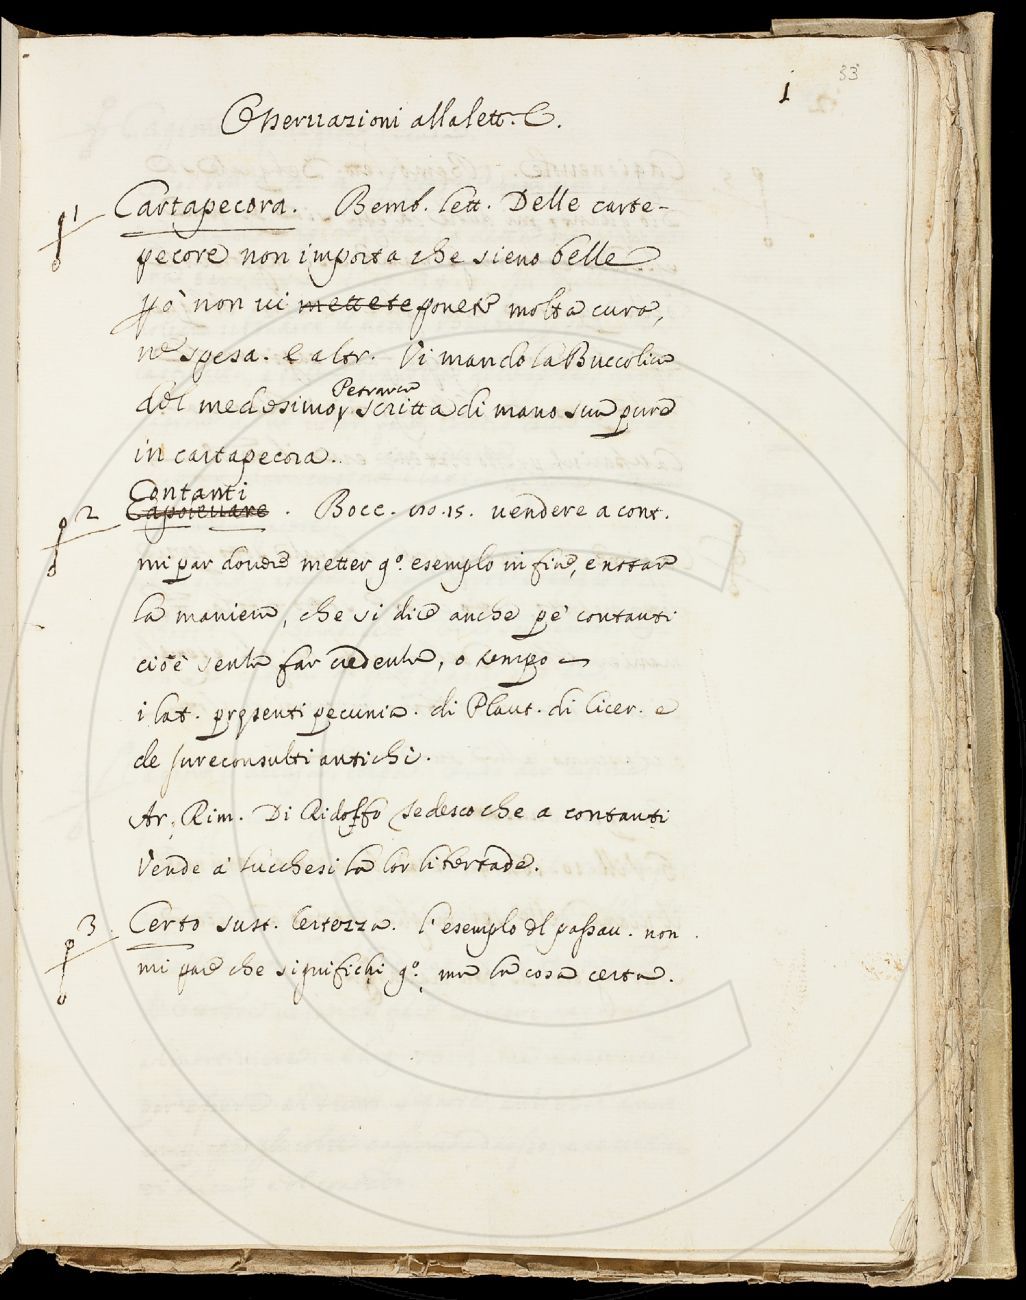 33
1
Osseruazioni alla lett. C.
1 Cartapecora. Bemb. lett. Delle carte-
pecore non importa che sieno belle
però non ui mettete ponete molta cura,
nè spesa. E altr. Vi mando la Buccolica
del medesimo Petrarca scritta di mano sua pure
in cartapecora..
Contanti
2 . Bocc. no. 15. uendere a cont.
mi par douere metter qo. esemplo in fine, e notare
la maniera, che si dice anche pe' contanti
cioè senza far credenza, o tempo
i lat. presenti pecunia. di Plaut. di Cicer. e
de Jureconsulti antichi.
Ar. Rim. Di Ridolfo tedesco che a contanti
Vende a' Lucchesi la lor libertade.
3. Certo sust. Certezza. l'esemplo del passau. non
mi pare che significhi qo. ma la cosa certa.